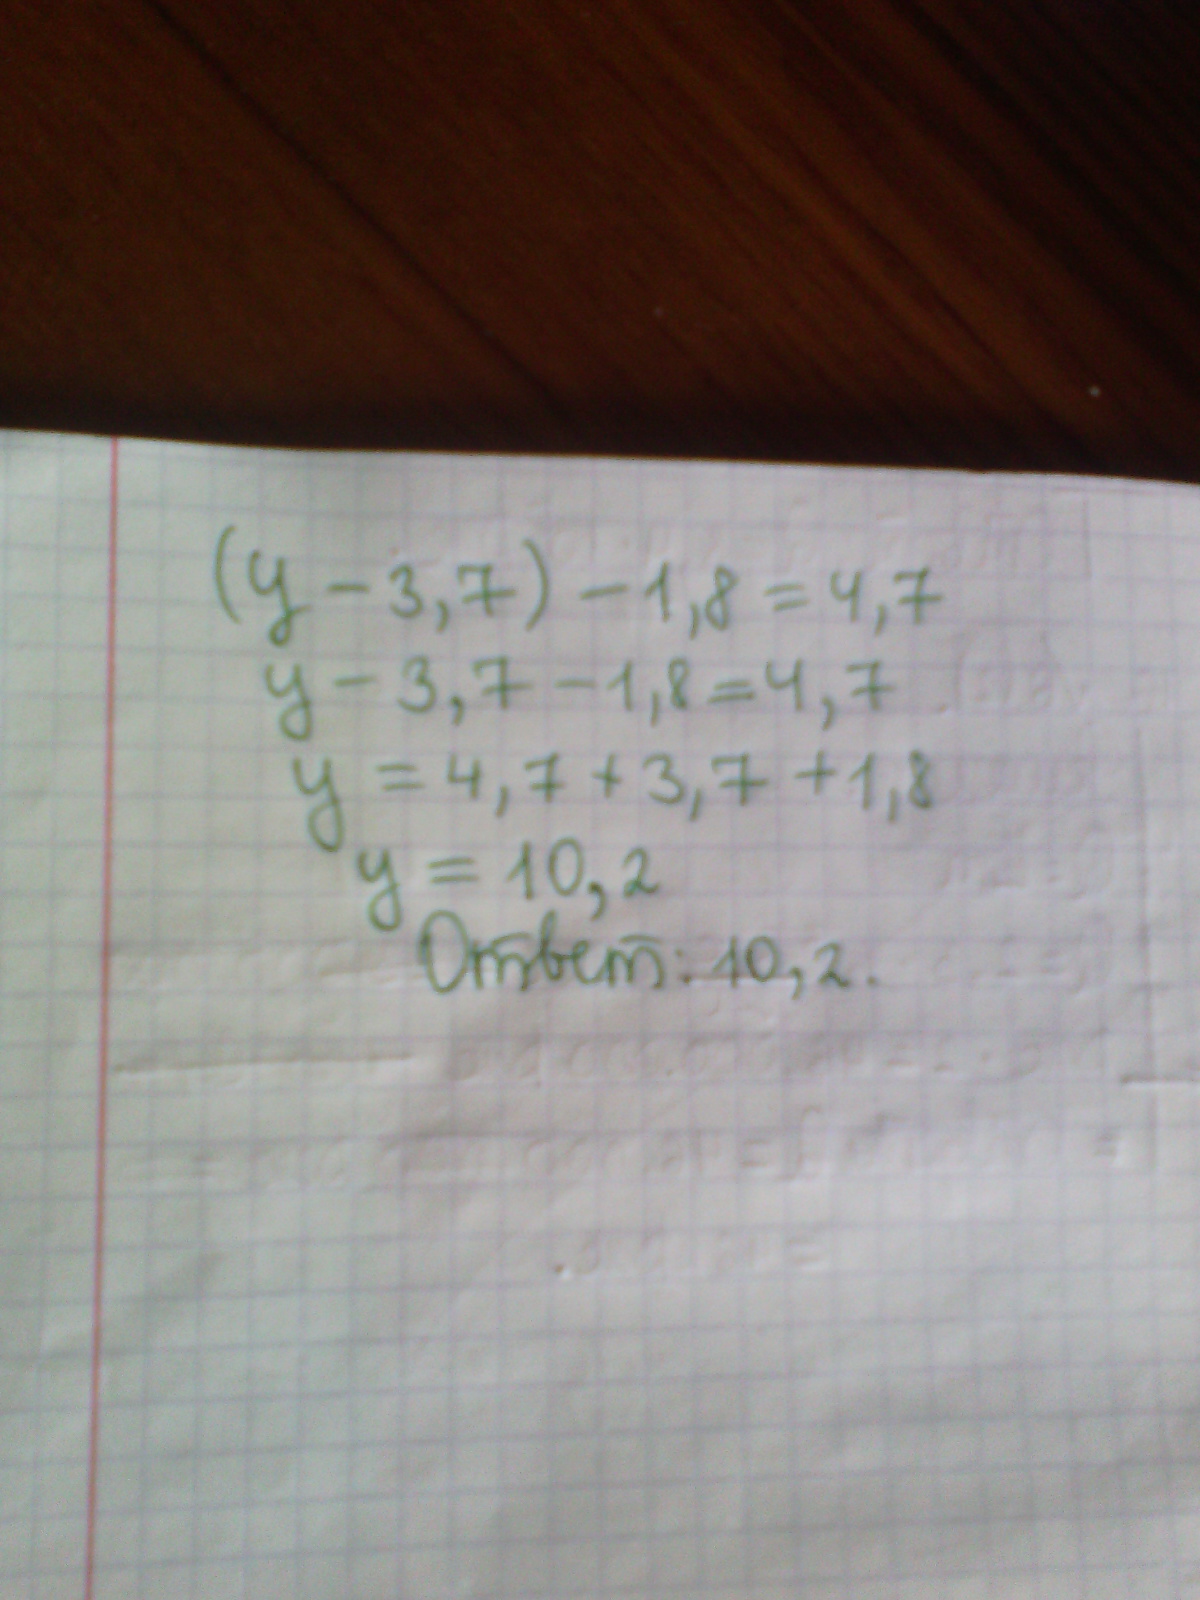 (y - 3,7) - 1,8 = 4,7
y - 3,7 - 1,8 = 4,7
y = 4,7 + 3,7 + 1,8
y = 10,2
Ответ: 10,2.